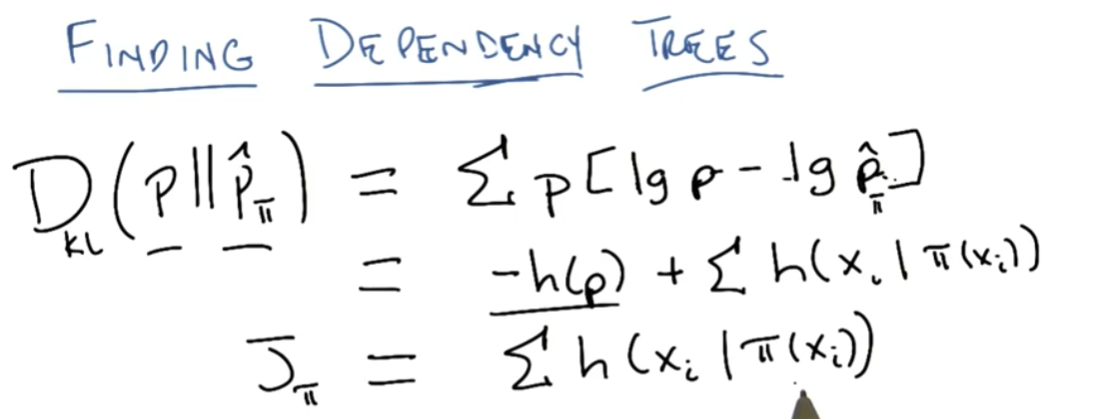 FINDING DEPENDENCY TREES
D_KL(p||p̂_π) = Σ p[lg p - lg p̂_π]
= -h(p) + Σ h(x_i | π(x_i))
J_π = Σ h(x_i | π(x_i))